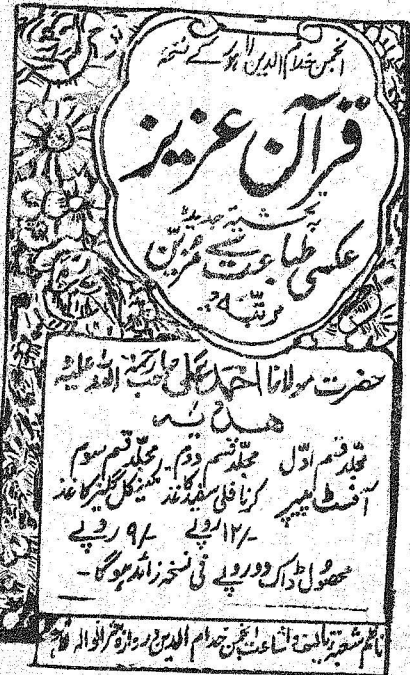 انجمن خدام الدین لاہور کے نسخہ
قرآن عزیز
عکسی طباعت سے مزین
مرتبہ
حضرت مولانا احمد علی صاحب رحمۃ اللہ علیہ
ہدیہ
مجلد قسم اول مجلد قسم دوم - مجلد قسم سوم
آفسٹ پیپر کرنافلی سفید کاغذ مکینیکل گلیز کاغذ
۱۲/- روپے ۹/- روپے
محصول ڈاک دو روپے فی نسخہ زائد ہوگا -
ناظم شعبہ تالیف و اشاعت انجمن خدام الدین دروازہ شیرانوالہ لاہور